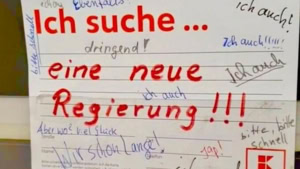 Ebenfalls
Ich auch!
Ich suche ...
bitte schnell
dringend!
Ich auch!!!!!
eine neue
Ich auch
Ich auch
Regierung!!!
Aber wo? viel Glück
bitte, bitte
schnell
Wir schon Lange!
Ja!
K